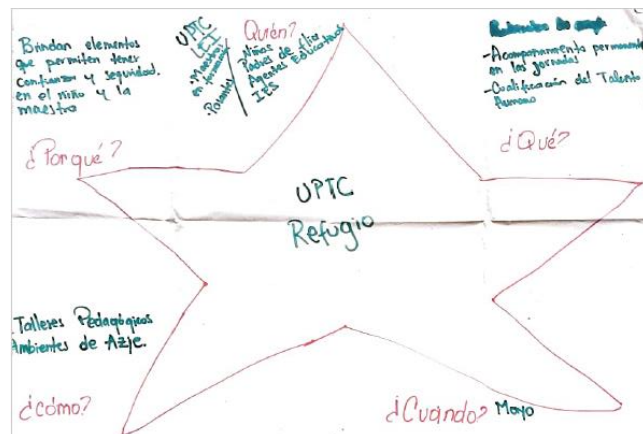 Brindan elementos
que permiten tener
confianza y seguridad.
en el niño y la
maestro
¿Por qué?
UPTC
LEI
• Maestros
en formación
• Pasantes
Quién?
Niños
Padres de flia
Agentes Educativos
IES
- Acompañamiento permanente
en las jornadas
- Cualificación del Talento
Humano
¿Qué?
UPTC
Refugio
Talleres Pedagógicos
Ambientes de Azje.
¿Cómo?
¿Cuándo? Mayo